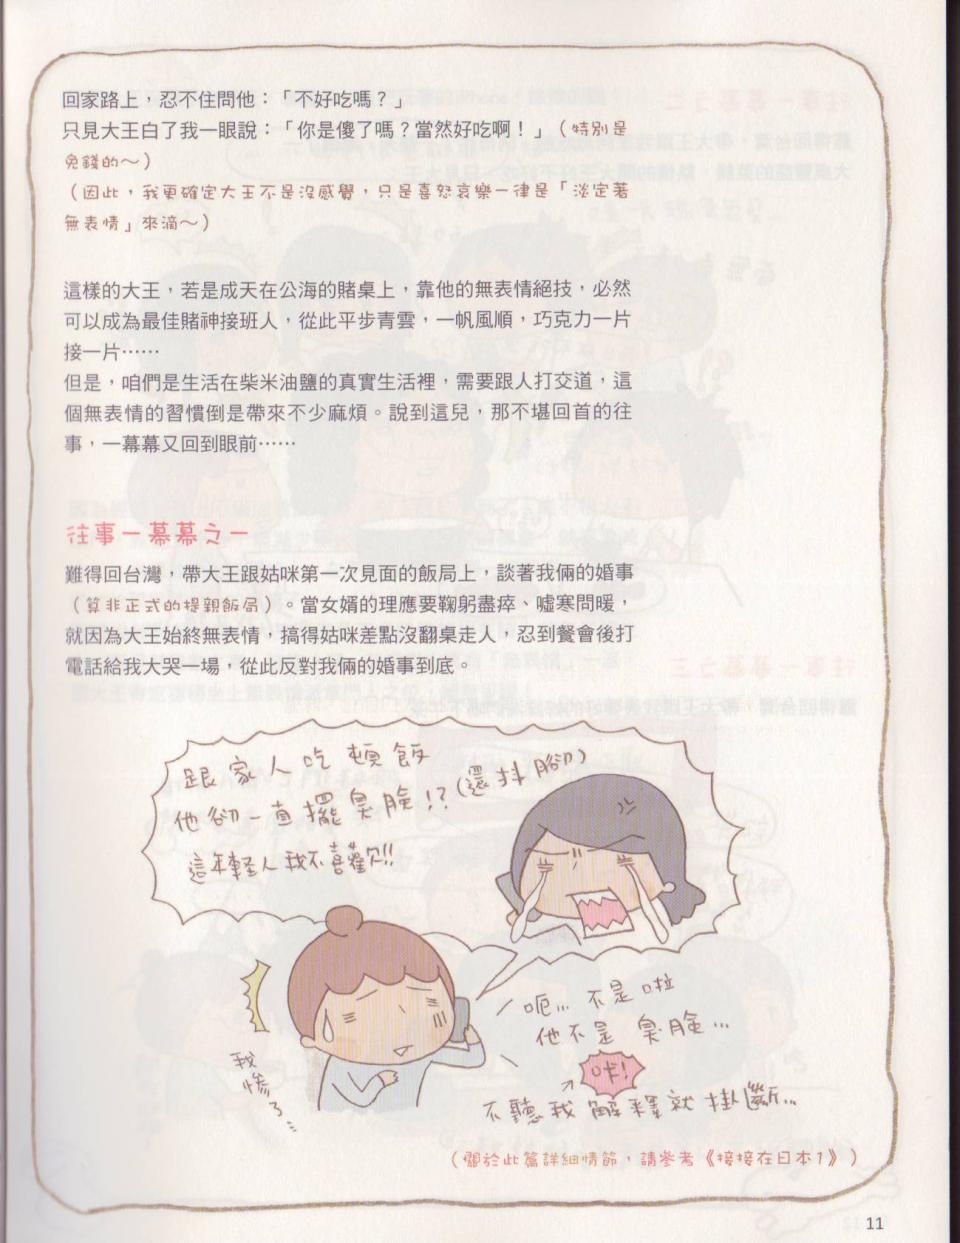 回家路上，忍不住問他：「不好吃嗎？」
只見大王白了我一眼說：「你是傻了嗎？當然好吃啊！」（特別是
免錢的～）
（因此，我更確定大王不是沒感覺，只是喜怒哀樂一律是「淡定著
無表情」來滴～）
這樣的大王，若是成天在公海的賭桌上，靠他的無表情絕技，必然
可以成為最佳賭神接班人，從此平步青雲，一帆風順，巧克力一片
接一片……
但是，咱們是生活在柴米油鹽的真實生活裡，需要跟人打交道，這
個無表情的習慣倒是帶來不少麻煩。說到這兒，那不堪回首的往
事，一幕幕又回到眼前……
往事一幕幕之一
難得回台灣，帶大王跟姑咪第一次見面的飯局上，談著我倆的婚事
（算非正式的提親飯局）。當女婿的理應要鞠躬盡瘁、噓寒問暖，
就因為大王始終無表情，搞得姑咪差點沒翻桌走人，忍到餐會後打
電話給我大哭一場，從此反對我倆的婚事到底。
跟家人吃頓飯
他卻一直擺臭臉!?(還抖腳)
這年輕人我不喜歡!!
呃…不是啦
他不是臭臉…
我慘了…
咔!
不聽我解釋就掛斷…
（關於此篇詳細情節，請參考《接接在日本1》）
11